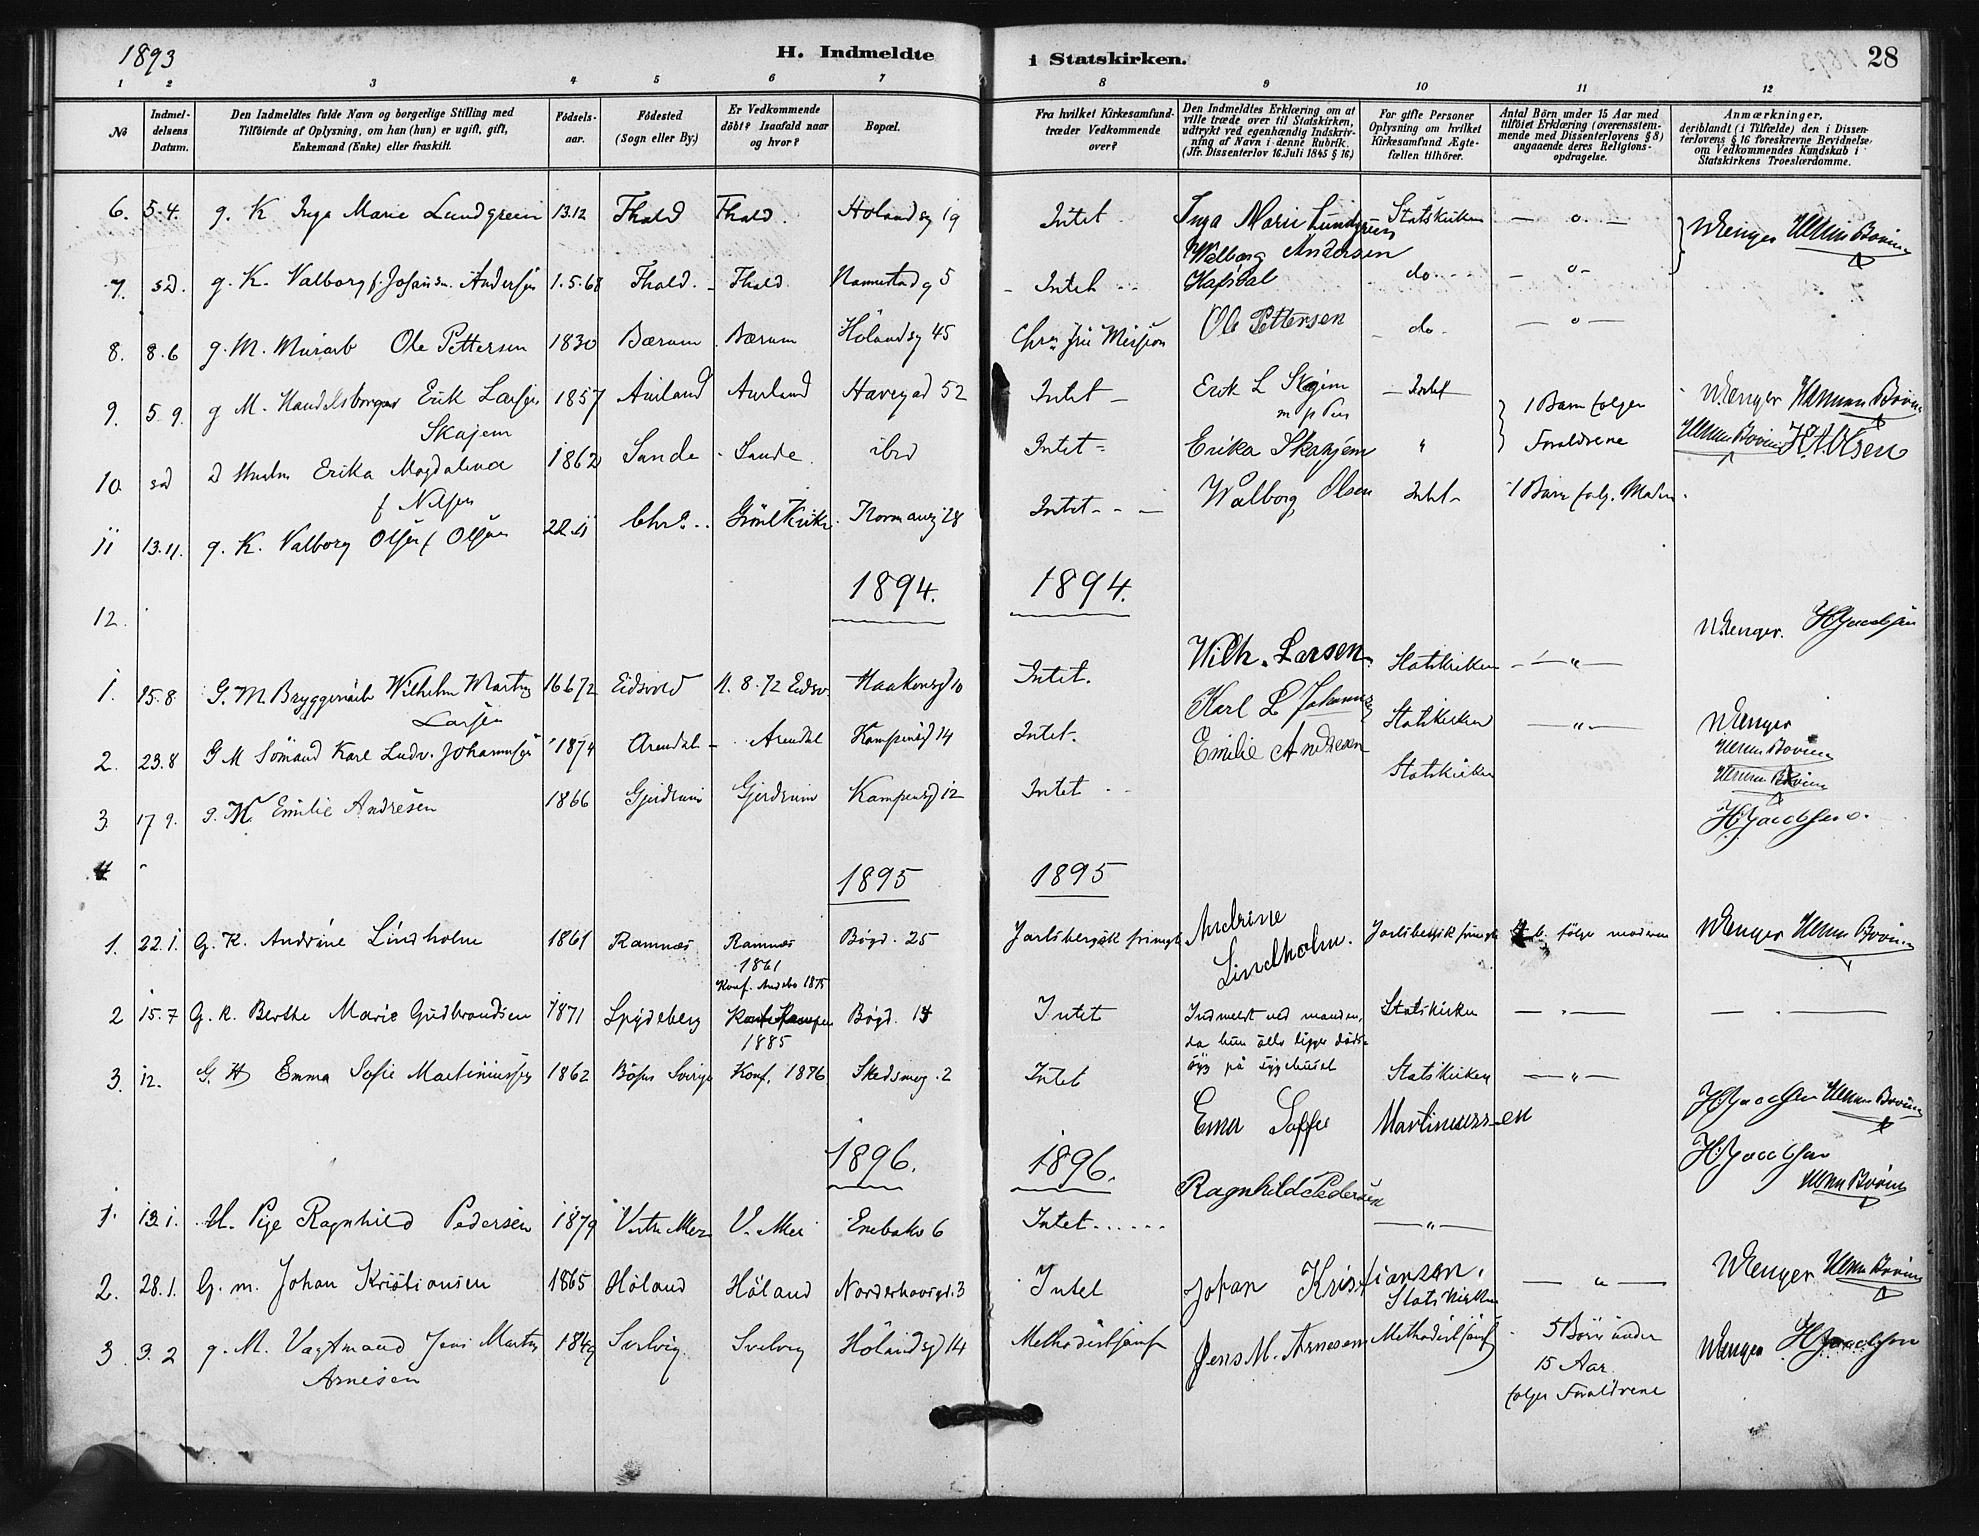 1893
H. Indmeldte i Statskirken.
28
1 2 3 4 5 6 7 8 9 10 11 12
No
Indmel-
delsens
Datum.
Den Indmeldtes fulde Navn og borgerlige Stilling med
Tilföiende af Oplysning, om han (hun) er ugift, gift,
Enkemand (Enke) eller fraskilt.
Födsels-
aar.
Födested
(Sogn eller By.)
Er Vedkommende
döbt? Isaafald naar
og hvor?
Bopæl.
Fra hvilket Kirkesamfund
træder Vedkommende
over?
Den Indmeldtes Erklæring om at
ville træde over til Statskirken,
udtrykt ved egenhændig Indskriv-
ning af Navn i denne Rubrik.
(Jfr. Dissenterlov 16. Juli 1845 § 16)
For gifte Personer
Oplysning om hvilket
Kirkesamfund Ægte-
fællen tilhörer.
Antal Börn under 15 Aar med
tilföiet Erklæring (overensstem-
mende med Dissenterlovens § 8)
angaaende deres Religions-
opdragelse.
Anmærkninger,
deriblandt (i Tilfælde) den i Dissen-
terlovens § 16 foreskrevne Bevidnelse
om Vedkommendes Kundskab i
Statskirkens Troeslærdomme.
6. 5-4. g. K Inga Marie Lundgreen 13.12 Fhald Fhald. Hölandsg 19 Intet Inga Marie Lundgreen Statskirken — o — Wenger Herman Boving
7. sd. g. K. Valborg f. Johansen Andersen 1.5.68 Fhald. Fhald Nannestadg 5 Intet Walborg Andersen
Hafsdal do — o —
8. 8.6 g. M. Murarb Ole Pettersen 1830 Bærum Bærum Hölandsg 45 Chra frie Mission Ole Pettersen do — o —
9. 5-9. g M. Handelsborger Erik Larsen
Skajem 1857 Aurland Aurland Havegad 52 Intet Erik L Skajem
m p Pen Intet 1 Barn følger
Forældrene Wenger Herman Boving
10. sd d Hustru Erika Magdalena
f Nilsen 1862 Sande Sande ibid Intet Erika Skajem " Herman Boving H. A. Olsen
11 13.11. g. K. Valborg Olsen f Olsen Chr. Grönl Kirke Normannsg 28 Intet Walborg Olsen Intet 1 Barn følg. Moderen
12. 1894. 1894.
Wenger. H Jacobsen
1. 15.8 G. M. Bryggeriarb Wilhelm Martin
Larsen 16 6 72 Eidsvold 11.8.72 Eidsv. Haakonsgd 10 Intet. Wilh. Larsen Statskirken — " —
2. 23.8 G M Sömand Karl Ludv. Johannsen 1874 Arendal Arendal Kampensgd 14 Intet. Karl L Johannsen Statskirken — " — Wenger
Herman Boving
3. 17 9. g. K. Emilie Andresen 1866 Gjerdrum Gjerdrum Kampensgd 12 Intet Emilie Andresen Statskirken Herman Boving
H Jacobsen
4. 1895 1895
1. 22.1. G. K. Andrine Lindholm 1861 Ramnæs Ramnæs
1861
Konf. Andebo 1875 Bögd. 25 Jarlsbergsk frimgh Andrine
Lindholm. Jarlsbergsk frimgh b. følge moderen Wenger Herman Boving
2 15.7 G. K. Berthe Marie Gudbrandsen 1871 Spydeberg
1885 Bögd. 14 Intet Indmeldt ved manden,
da hun alls ligger döds-
syg på sygehuset Statskirken — " —
3. 12. G. H Emma Sofie Martiniussen 1862 Sverige Konf. 1876 Skedsmog. 2 Intet Statskirken — " —
Ema Soffie Martinussen H Jacobsen Herman Boving
1896. 1896.
1. 13.1. U. Pige Ragnhild Pedersen 1879 V. Aker Enebakv 6 Intet Ragnhild Pedersen — " — H Jacobsen
Herman Boving
2. 28.1. G. m. Johan Kristiansen 1865 Höland Höland Norderhovsgd. 3 Intet Johan Kristiansen.
Statskirken — " — Wenger Herman Boving
3 3.2 g. M. Vagtmand Jens Martin
Arnesen 1849 Svelvig Svelvig Hölandsgd 14 Methodistsamf Jens M. Arnesen Methodistsamf 5 Börn under
15 Aar
følger Forældrene Wenger H Jacobsen